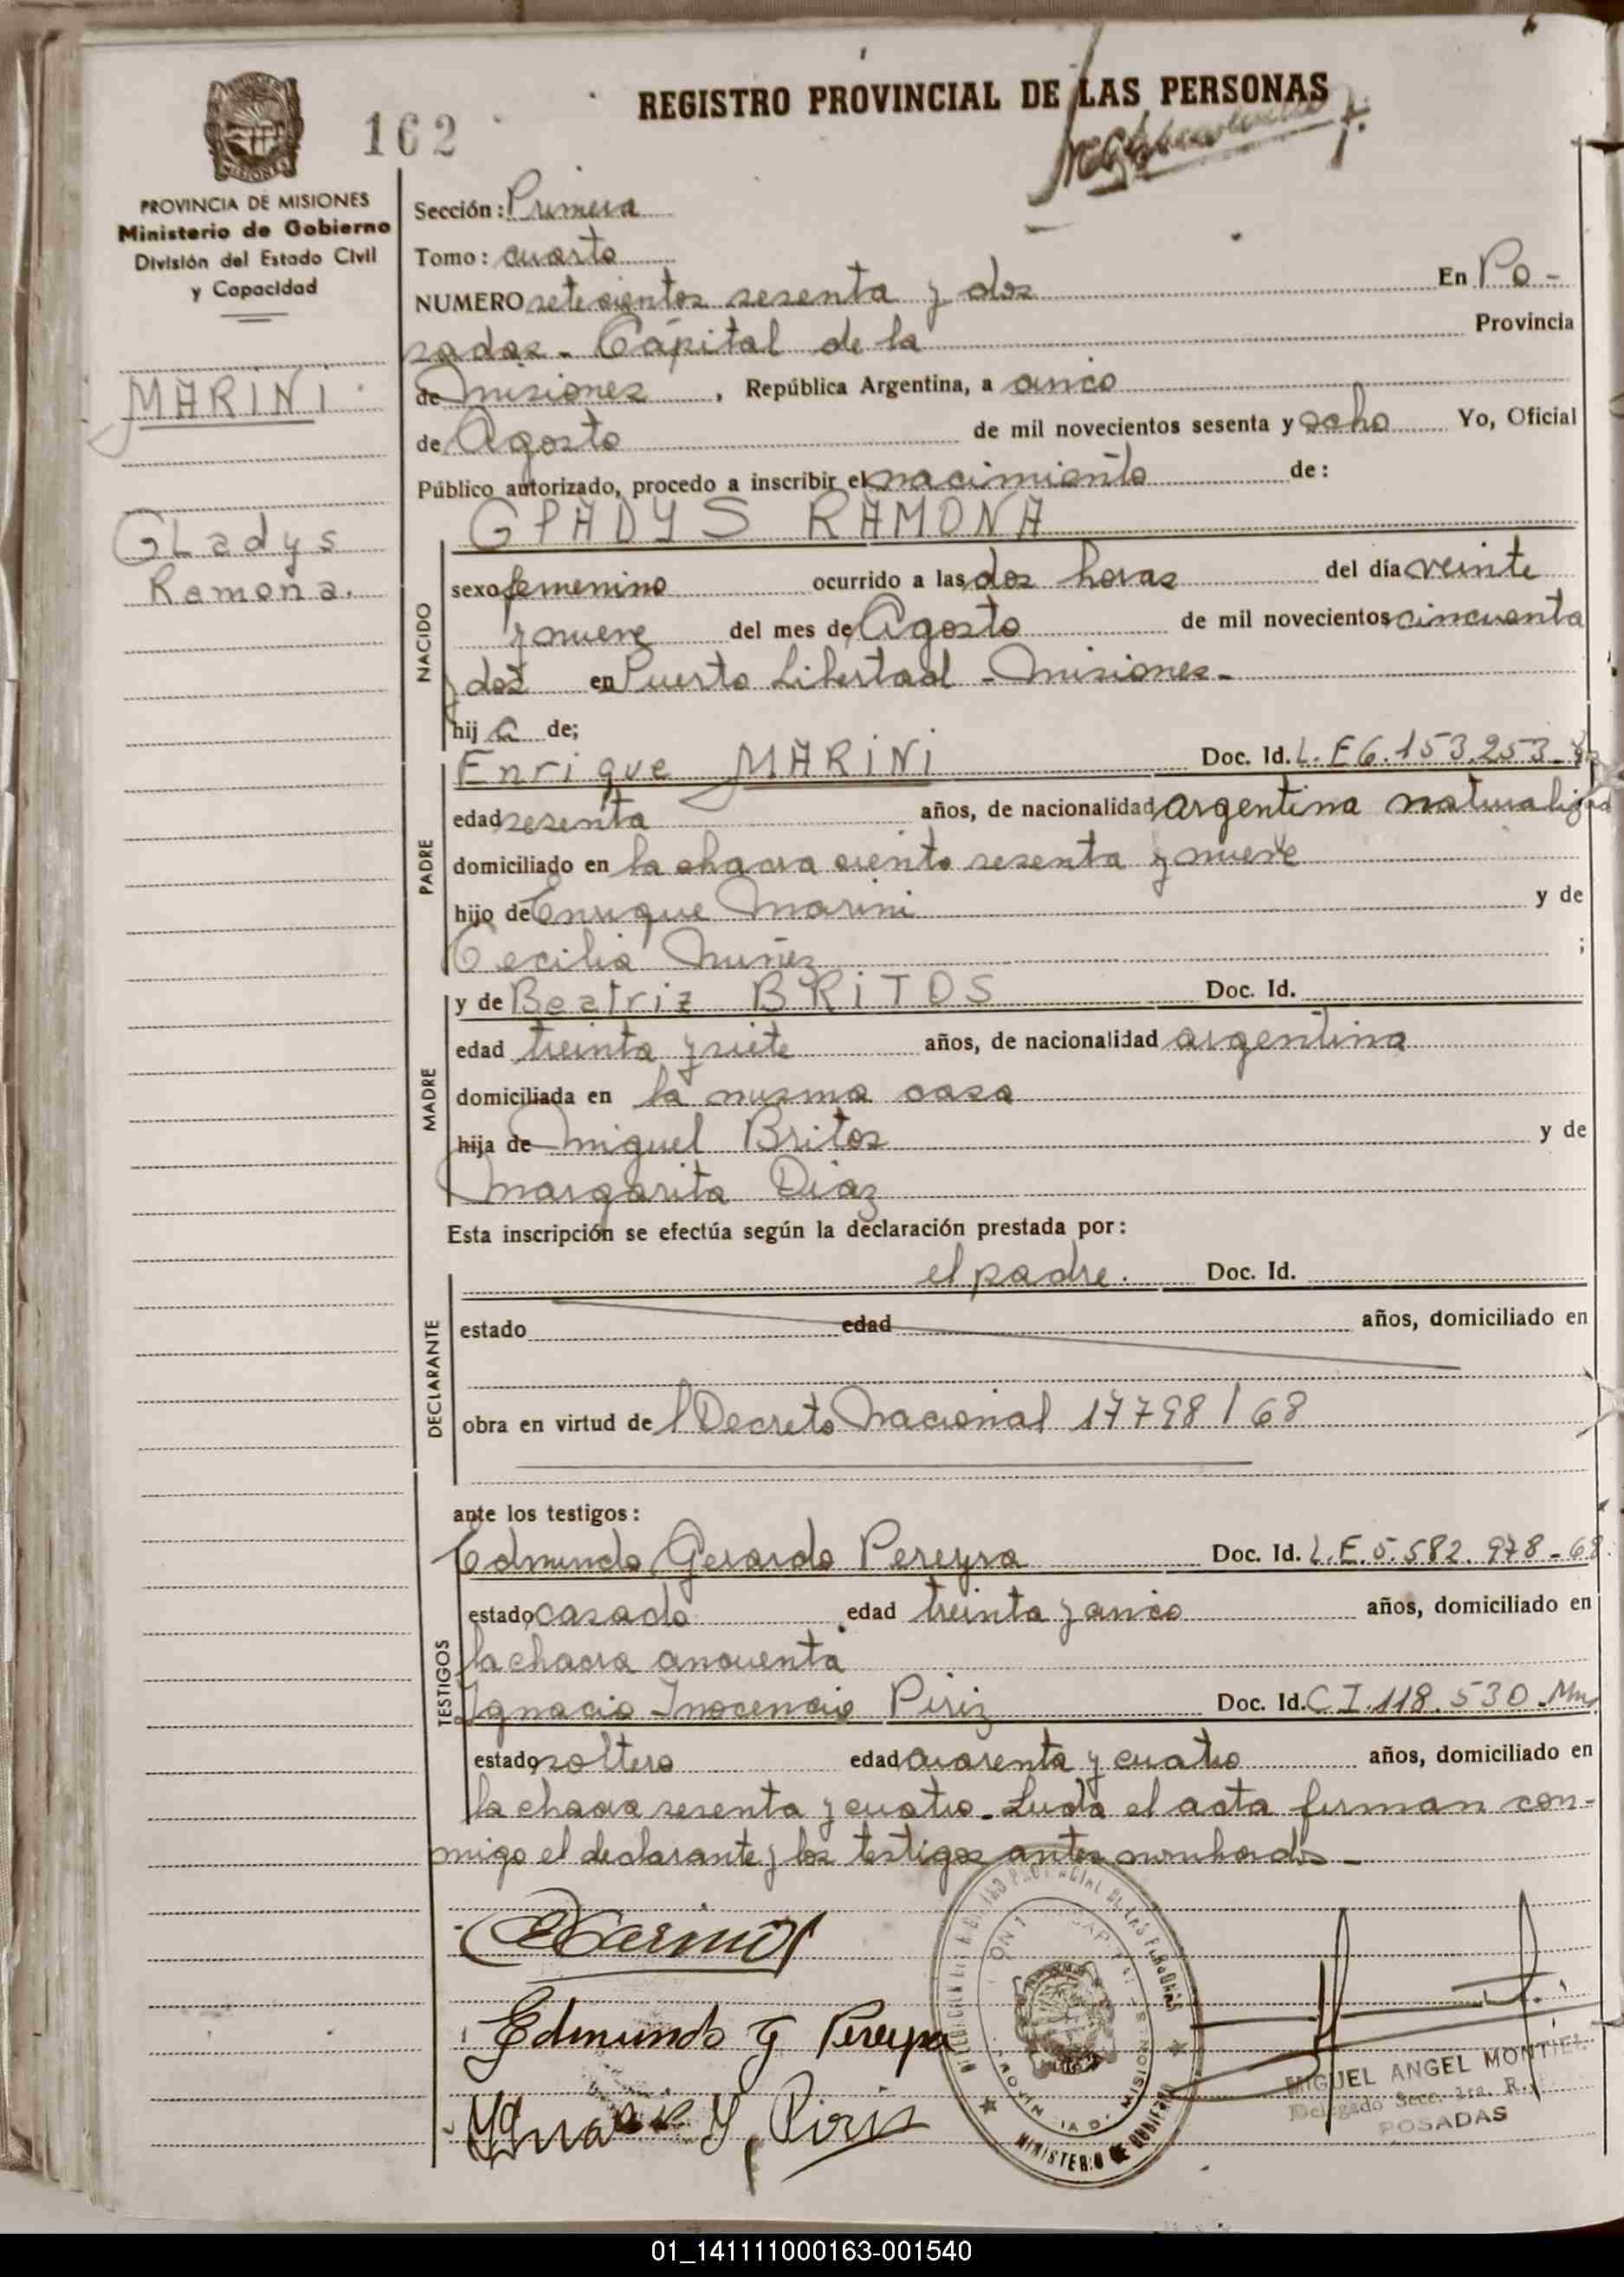 REGISTRO PROVINCIAL DE LAS PERSONAS
162
PROVINCIA DE MISIONES
Ministerio de Gobierno
División del Estado Civil
y Capacidad
MARINI
Gladys
Ramona.
Sección: Primera
Tomo: cuarto
NUMERO setecientos sesenta y dos En Po-
sadas - Capital de la Provincia
de Misiones, República Argentina, a cinco
de Agosto de mil novecientos sesenta y ocho Yo, Oficial
Público autorizado, procedo a inscribir el nacimiento de:
GLADYS RAMONA
NACIDO
sexo femenino ocurrido a las dos horas del día veinte
y nueve del mes de Agosto de mil novecientos cincuenta
y dos en Puerto Libertad - Misiones -
hija de;
PADRE
Enrique MARINI Doc. Id. L.E 6.153.253
edad sesenta años, de nacionalidad argentina
domiciliado en la chacra ciento sesenta y nueve
hijo de Enrique Marini y de
Cecilia Nuñez ;
MADRE
y de Beatriz BRITOS Doc. Id.
edad treinta y siete años, de nacionalidad argentina
domiciliada en la misma casa
hija de Miguel Britos y de
Margarita Diaz
Esta inscripción se efectúa según la declaración prestada por:
DECLARANTE
el padre. Doc. Id.
estado edad años, domiciliado en
obra en virtud del Decreto Nacional 17798/68
TESTIGOS
ante los testigos:
Edmundo Gerardo Pereyra Doc. Id. L.E.5.582.978-68
estado casado edad treinta y cinco años, domiciliado en
la chacra cincuenta
Ignacio Inocencio Piriz Doc. Id. C I.118.530-Mns
estado soltero edad cuarenta y cuatro años, domiciliado en
la chacra sesenta y cuatro. Leida el acta firman con-
migo el declarante y los testigos antes nombrados -
EMarini
Edmundo G Pereyra
Ignacio Y. Piris
MINISTERIO DE GOBIERNO
MIGUEL ANGEL MONTIEL
Delegado Secc. 1ra. R.
POSADAS
01_141111000163-001540